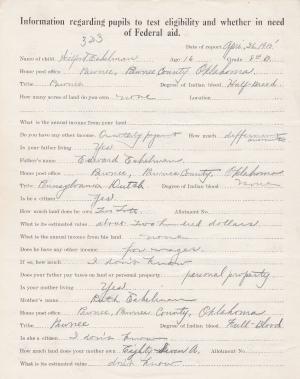 Information regarding pupils to test eligibility and whether in need
of Federal aid.
323
Date of report Apr. 26, 1915
Name of child Eshelman Age 16 Grade 5th B.
Home post office Pawnee, Pawnee County, Oklahoma
Tribe Pawnee Degree of Indian blood Half-Breed
How many acres of land do you own none Location
What is the annual income from your land
Do you have any other income. Quarterly paym't How much different amounts
Is your father living Yes
Father's name Edward Eshelman
Home post office Pawnee, Pawnee County, Oklahoma
Tribe Pennsylvania Dutch Degree of Indian blood none
Is he a citizen Yes
How much land does he own Two Lots Allotment No.
What is its estimated value about two hundred dollars
What is the annual income from his land none
Does he have any other income for wages
If so, how much I don't know
Does your father pay taxes on land or personal property personal property
Is your mother living Yes
Mother's name Ruth Eshelman
Home post office Pawnee, Pawnee County, Oklahoma
Tribe Pawnee Degree of Indian blood Full-Blood
Is she a citizen I don't know
How much land does your mother own Eighty Seven A. Allotment No.
What is its estimated value don't know